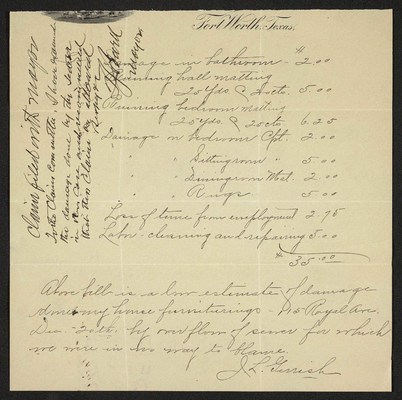 Fort Worth, Texas.
Damage in bathroom - $2.00
Ruining hall matting
20 yds @ 25cts. 5.00
Ruining bedroom matting
25 yds @ 25cts 6.25
Damage in bedroom Cpt. 2.00
" " Sittingroom " 5.00
" " Diningroom Mat. 2.00
" " Rugs 5.00
Loss of time from employment 2.75
Labor - cleaning and repairing 5.00
$35.00
Above bill is a low estimate of damage
done my house furnishings - Royal Ave.
Dec - 20th. by overflow of sewer for which
we were in no way to blame.
J. L. Gerrish
Claim filed with mayor
To the Claims committee, I have
the damage done by the sewer
in this case and
that this Claim be allowed
mayor